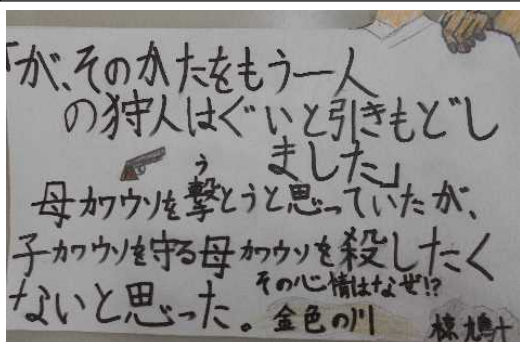 「が、そのかたをもう一人
の狩人はぐいと引きもどし
ました」
う
母カワウソを撃とうと思っていたが、
子カワウソを守る母カワウソを殺したく
ないと思った。
その心情はなぜ!?
金色の川
椋鳩十